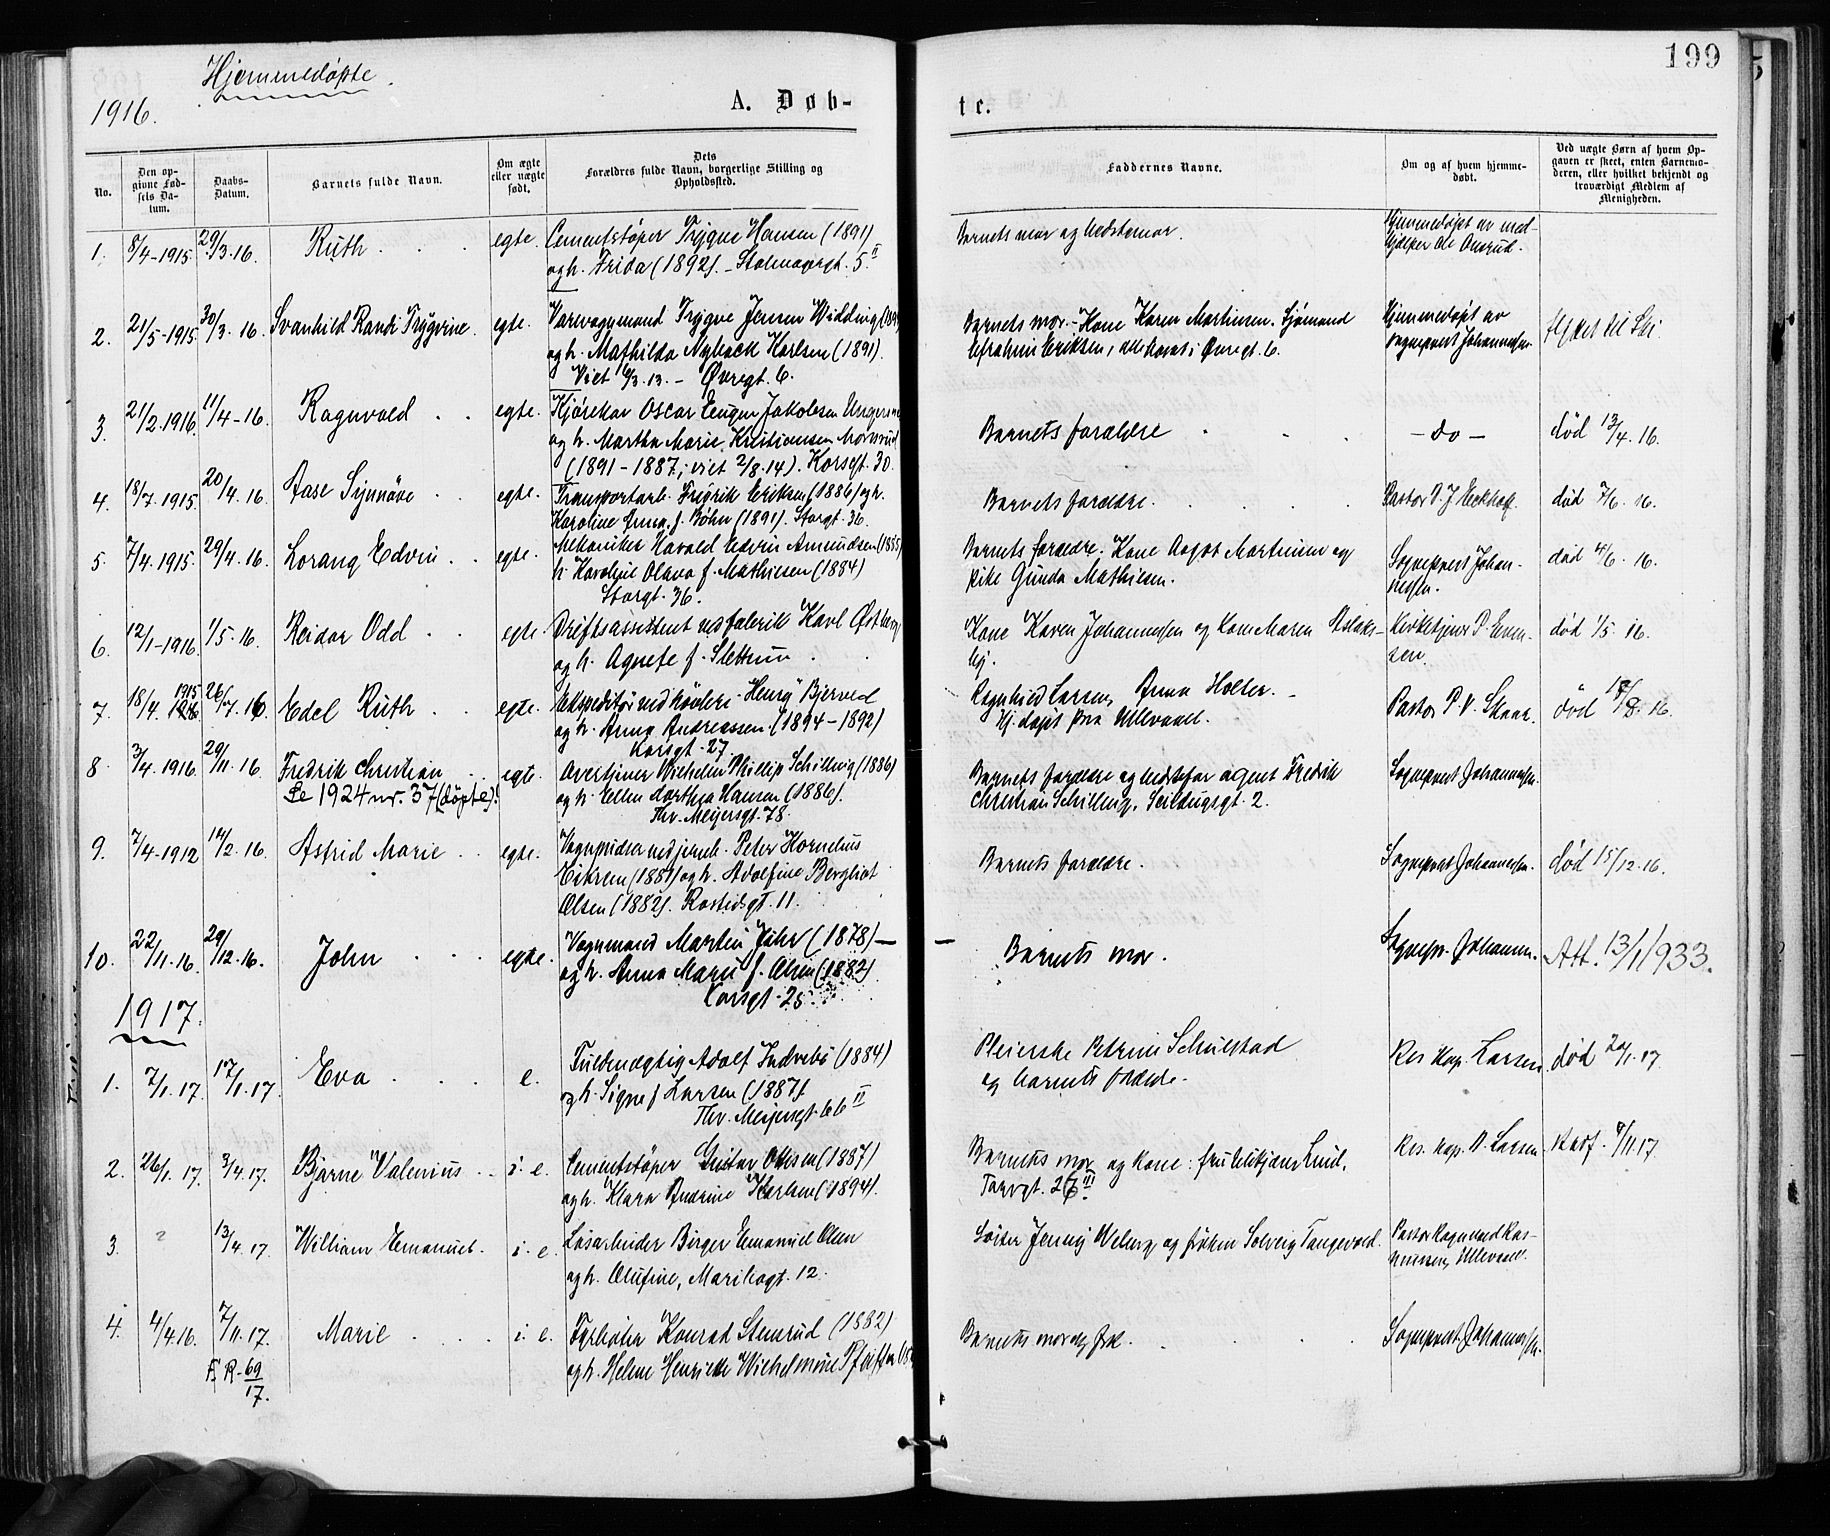 199
Hjemmedøpte.
1916.
A. Døb-
te.
No.
Den op-
givne Fød-
sels Da-
tum.
Daabs-
Datum.
Barnets fulde Navn.
Om ægte
eller uægte
født.
Dets
Forældres fulde Navn, borgerlige Stilling og
Opholdssted.
Faddernes Navne.
Om og af hvem hjemme-
døbt.
Ved uægte Børn af hvem Op-
gaven er skeet, enten Barnemo-
deren, eller hvilket bekjendt og
troværdigt Medlem af
Menigheden.
1. 8/4-1915 29/3.16. Ruth egte. Cementstøper Trygve Hansen (1891)
og h. Frida (1892). 5. II
Barnets mor og bedstemor.
Hjemmedøpt av med-
hjælper
2. 21/5-1915 30/3.16. Svanhild Randi Trygvine. egte. Varevognmand Trygve Jensen Widding
og h. Mathilde Nyback Karlsen (1891).
Viet 6/3.13. - Øvregt. 6.
Barnets mor. - Kone Karen Martinsen. Sjømand
Efrahim Eriksen, alle Øvregt. 6.
Hjemmedøpt av
sogneprest Johannessen.
3. 21/2.1916. 11/4-16. Ragnvald egte. Kjørekar Oscar Eugen Jakobsen
og h. Martha Marie Kristiansen
(1891-1887, viet 2/8.14). Korsgt. 30.
Barnets forældre
- do -
død 13/4.16.
4. 18/7.1915. 20/4.16. Aase Synnøve egte. Transportarb. Fredrik Eriksen (1886) og h.
Karoline Anna, f. Bøhn (1891). Storgt. 36.
Barnets forældre.
Pastor
død 7/6.16.
5. 7/4.1915. 29/4.16. Lorang Edvin egte. Mekaniker Harald Edvin Amundsen
h. Olava f. Mathiesen (1884)
Storgt. 36.
Barnets forældre. Kone Martinsen og
pike Gunda Mathiesen.
Sogneprest Johan-
nessen.
død 4/6.16.
6. 12/1-1916. 1/5.16. Reidar Odd egte Driftsassistent ved fabrik Karl
og h. Agnete f. Slettum
Kone Karen Johannessen og Kone Maren
Kirketjener P. Even-
sen.
død 1/5.16.
7. 18/4. 1915 26/7.16 Edel Ruth egte. Ekspeditør ved "Henry" Bjerved
og h. Anna Andreassen (1894-1892)
Korsgt. 27.
Ragnhild Larsen, Anna Holter. -
Hj. døpt paa Ullevaal.
Pastor P. V.
død 17/8.16.
8 3/4.1916. 29/11.16. Fredrik Christian egte. Wilhelm Phillip Schilling (1886)
Se 1924 nr. 37 (døpte)!
og h. Ellen Dorthea Hansen (1886).
Thv. Meyersgt. 78.
Barnets forældre og bedstefar agent Fredrik
Christian Schilling, Seildugsgt. 2.
Sogneprest Johannessen.
9. 7/4-1912 14/12.16. Astrid Marie egte. Vognpudser ved jernb. Peter Kornelius
og h. Adolfine Bergliot
Olsen (1882). 11.
Barnets forældre.
Sogneprest Johannessen.
død 15/12.16.
10. 22/11.16. 29/12.16. John egte. Vognmand Martin (1878) -
og h. Anna Marie f. Olsen (1882)
Korsgt. 25.
- Barnets mor.
Sognepr. Johannessen.
Att. 13/1 1933.
1917.
1. 7/1.17. 17/1.17. Eva e. Fuldmægtig Adolf Indrebø (1884)
og h. Signe f. Larsen (1887).
Thv. Meyersgt. 66 II
Pleierske Petrine Schulstad
og barnets forældre.
Res. kap. Larsen
død 20/1.17.
2. 26/1.17. 3/4.17. Bjarne Valenius i. e. Cementstøper Gustav Olsen (1887)
og h. Klara Andrine Karlsen (1894).
Barnets mor og kone: Lund,
Torvgt. III
Res. kap. Larsen
9/11.17.
3. ? 13/4.17. William Emanuel. i. e. Løsarbeider Birger Emanuel Olsen
og h. Olufine, Maribogt. 12.
Søster Jenny Weberg og frøken Solveig Tangevald.
Pastor Ragnvald Ras-
mussen, Ullevaal.
4. 4/4.16. 7/11.17. Marie i. e. Fyrbøter Konrad Stensrud (1882)
F. R. 69/17.
og h. Helene Henriette Wilhelmine
Barnets mor og
Sogneprest Johannessen.